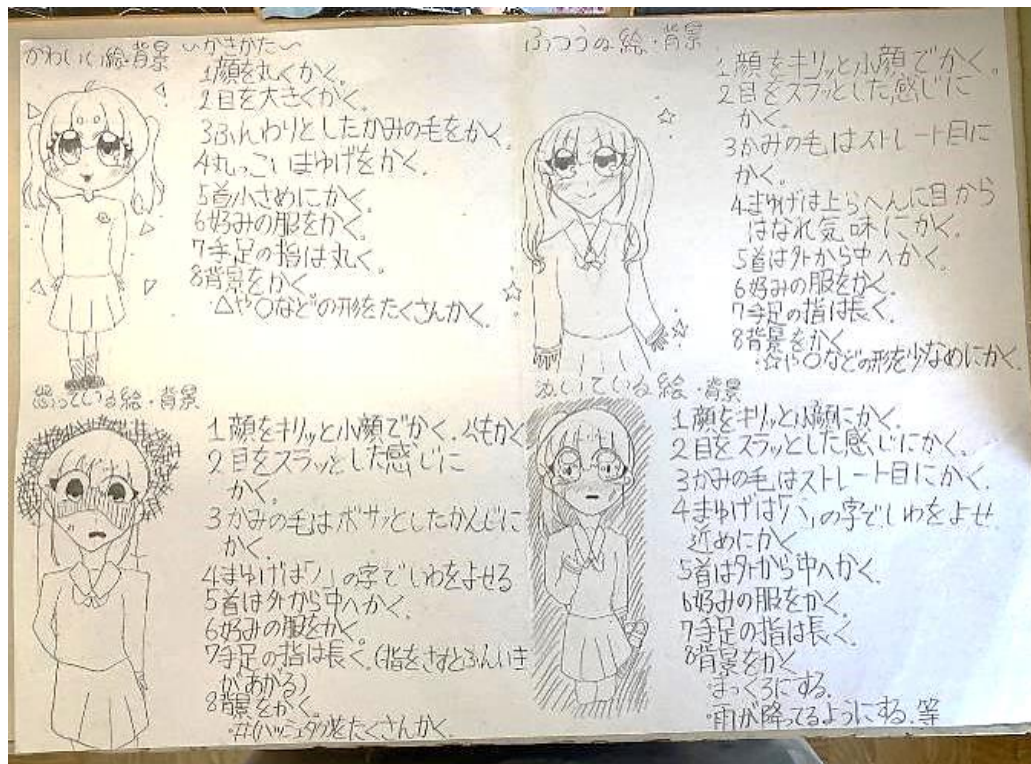 かわいい絵・背景
〜かきかた〜
1顔を丸くかく。
2目を大きくかく。
3ふんわりとしたかみの毛をかく。
4丸っこいまゆげをかく。
5首小さめにかく。
6好みの服をかく。
7手足の指は丸く。
8背景をかく
・△や○などの形をたくさんかく。
ふつうの絵・背景
1顔をキリッと小顔でかく。
2目をスラッとした感じに
かく。
3かみの毛はストレート目に
かく。
4まゆげは上らへんに目から
はなれ気味にかく。
5首は外から中へかく。
6好みの服をかく。
7手足の指は長く。
8背景をかく
・☆や○などの形を少なめにかく。
怒っている絵・背景
1顔をキリッと小顔でかく。
もかく
2目をスラッとした感じに
かく。
3かみの毛はボサッとしたかんじに
かく。
4まゆげは「ハ」の字でしわをよせる
5首は外から中へかく。
6好みの服をかく。
7手足の指は長く。(指をさすとふんいき
があがる)
8背景をかく。
・#(ハッシュタグ)をたくさんかく。
泣いている絵・背景
1顔をキリッと小顔にかく。
2目をスラッとした感じにかく。
3かみの毛はストレート目にかく。
4まゆげは「ハ」の字でしわをよせ
近めにかく
5首は外から中へかく。
6好みの服をかく。
7手足の指は長く。
8背景をかく
・まっくろにする。
・雨が降ってるようにする。等